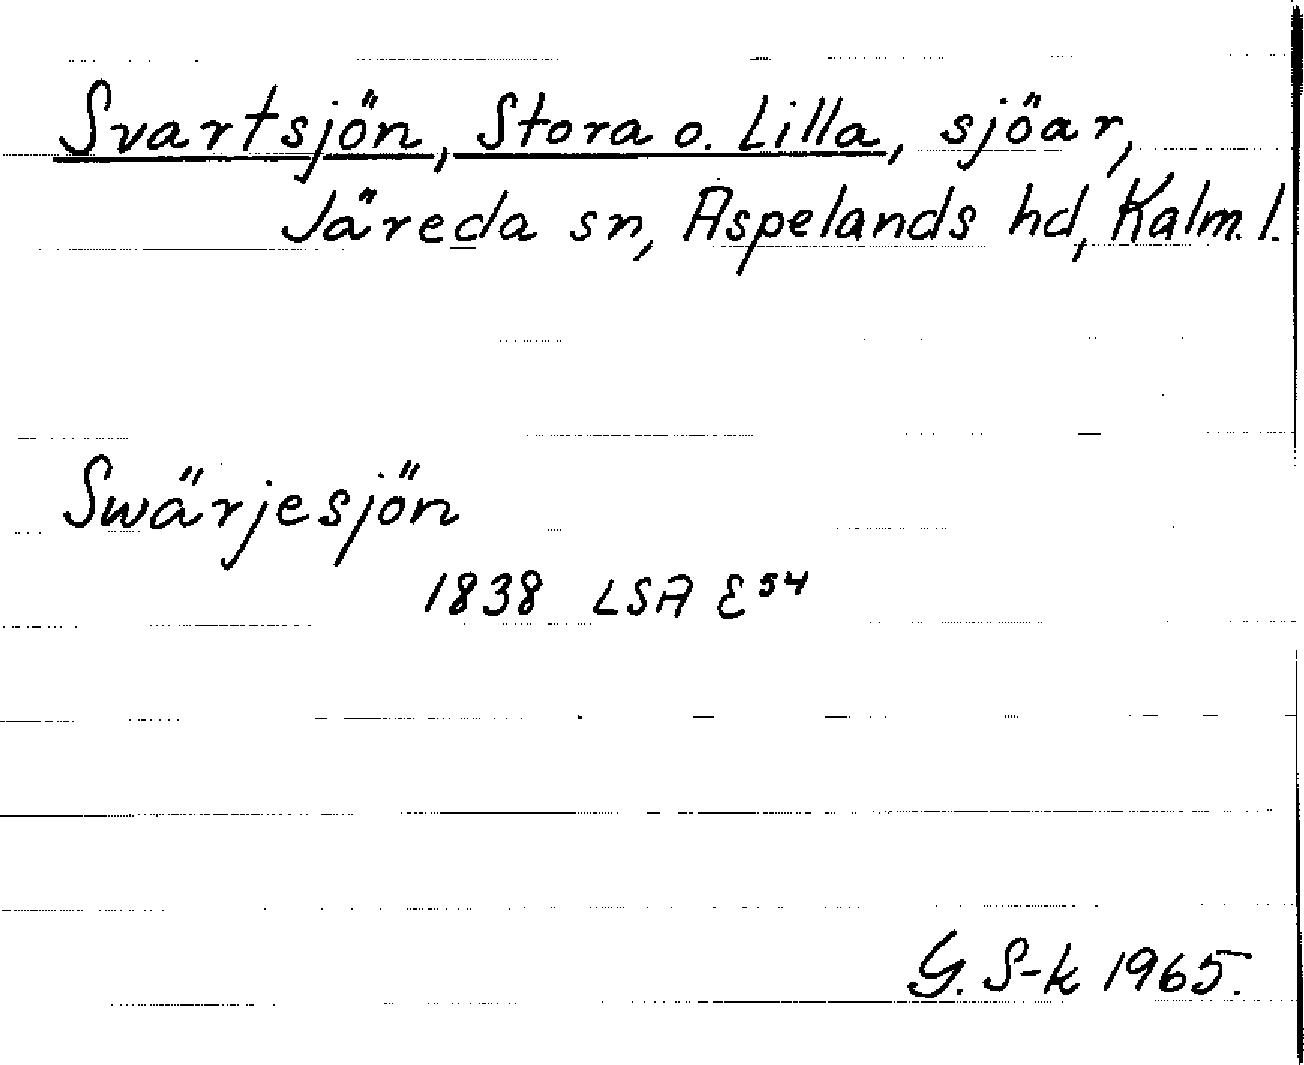 Svartsjön, Stora o. Lilla, sjöar,
Järeda sn, Aspelands hd, Kalm. l.
Swärjesjön
1838 LSA E54
G. S-k 1965.